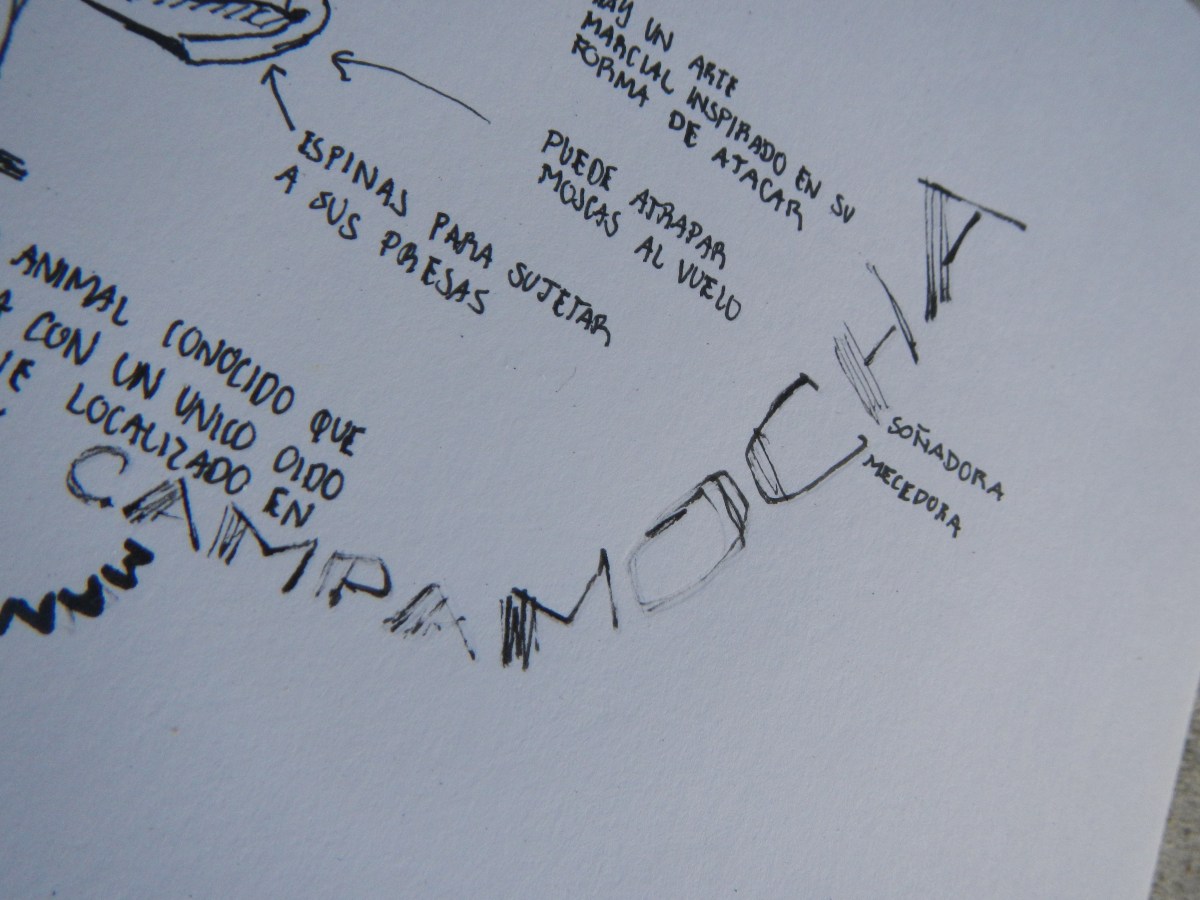 HAY UN ARTE
MARCIAL INSPIRADO EN SU
FORMA DE ATACAR
PUEDE ATRAPAR
MOSCAS AL VUELO
ESPINAS PARA SUJETAR
A SUS PRESAS
ANIMAL CONOCIDO QUE
CON UN UNICO OIDO
LOCALIZADO EN
CAMPAMOCHA
SOÑADORA
MECEDORA